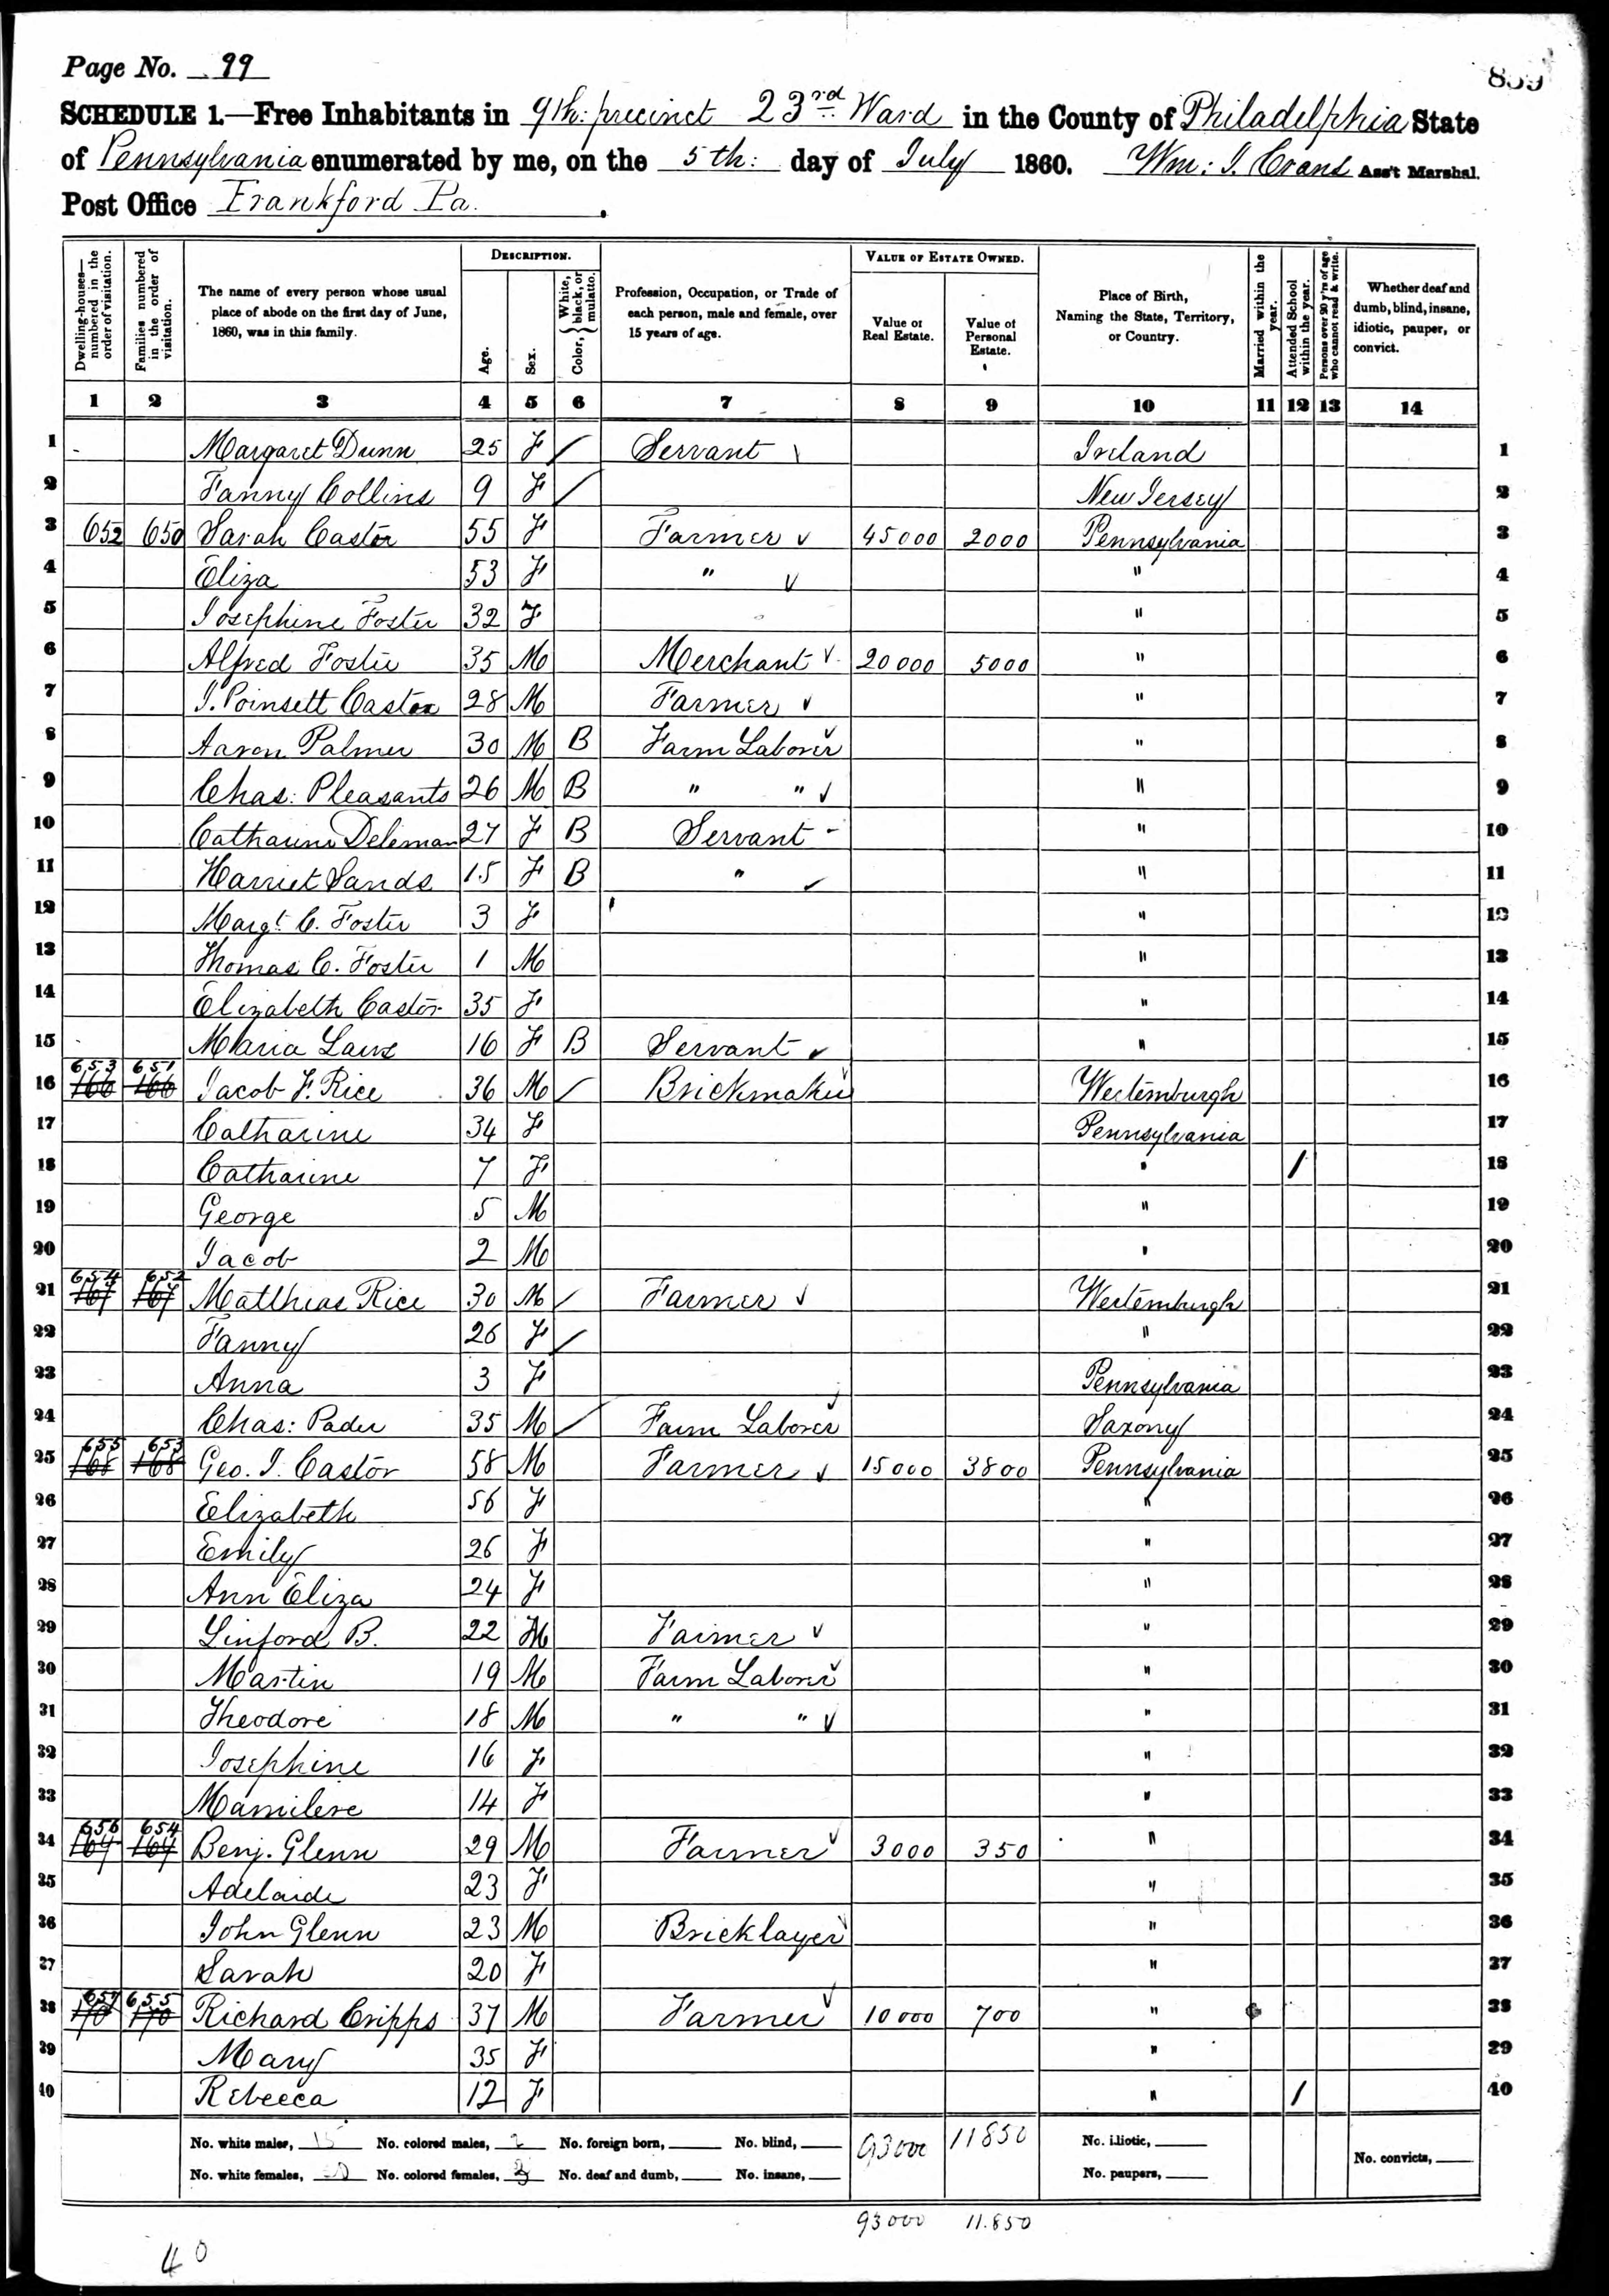 Page No. 99
859
SCHEDULE 1.—Free Inhabitants in 9th: precinct 23rd Ward in the County of Philadelphia State
of Pennsylvania enumerated by me, on the 5th: day of July 1860. Wm: J. Evans Ass't Marshal.
Post Office Frankford Pa.
Dwelling-houses—numbered in the order of visitation.
Families numbered in the order of visitation.
The name of every person whose usual place of abode on the first day of June, 1860, was in this family.
DESCRIPTION.
Age.
Sex.
Color, { White, black, or mulatto.
Profession, Occupation, or Trade of each person, male and female, over 15 years of age.
VALUE OF ESTATE OWNED.
Value of Real Estate.
Value of Personal Estate.
Place of Birth, Naming the State, Territory, or Country.
Married within the year.
Attended School within the year.
Persons over 20 y'rs of age who cannot read & write.
Whether deaf and dumb, blind, insane, idiotic, pauper, or convict.
1 2 3 4 5 6 7 8 9 10 11 12 13 14
1 Margaret Dunn 25 F / Servant Ireland 1
2 Fanny Collins 9 F / New Jersey 2
3 652 650 Sarah Castor 55 F Farmer 45000 2000 Pennsylvania 3
4 Eliza 53 F " " 4
5 Josephine Foster 32 F " 5
6 Alfred Foster 35 M Merchant 20000 5000 " 6
7 J. Poinsett Castor 28 M Farmer " 7
8 Aaron Palmer 30 M B Farm Laborer " 8
9 Chas: Pleasants 26 M B " " " 9
10 Catharine Deleman 27 F B Servant " 10
11 Harriet Sands 15 F B " " 11
12 Margt. C. Foster 3 F " 12
13 Thomas C. Foster 1 M " 13
14 Elizabeth Castor 35 F " 14
15 Maria Laws 16 F B Servant " 15
16 653 651 166 166 Jacob F. Rice 36 M / Brickmaker Wertemburgh 16
17 Catharine 34 F Pennsylvania 17
18 Catharine 7 F " / 18
19 George 5 M " 19
20 Jacob 2 M " 20
21 654 652 167 167 Matthias Rice 30 M / Farmer Wertemburgh 21
22 Fanny 26 F / " 22
23 Anna 3 F Pennsylvania 23
24 Chas: Pader 35 M / Farm Laborer Saxony 24
25 655 653 168 168 Geo. J. Castor 58 M Farmer 15000 3800 Pennsylvania 25
26 Elizabeth 56 F " 26
27 Emily 26 F " 27
28 Ann Eliza 24 F " 28
29 Linford B. 22 M Farmer " 29
30 Martin 19 M Farm Laborer " 30
31 Theodore 18 M " " " 31
32 Josephine 16 F " 32
33 14 F " 33
34 656 654 169 169 Benj. Glenn 29 M Farmer 3000 350 " 34
35 Adelaide 23 F " 35
36 John Glenn 23 M Bricklayer " 36
37 Sarah 20 F " 37
38 657 655 170 170 Richard Cripps 37 M Farmer 10000 700 " 38
39 Mary 35 F " 39
40 Rebecca 12 F " / 40
No. white males, 15 No. colored males, 2 No. foreign born, No. blind, 93000 11850 No. idiotic,
No. white females, No. colored females, 3 No. deaf and dumb, No. insane, No. paupers, No. convicts,
93000 11.850
40